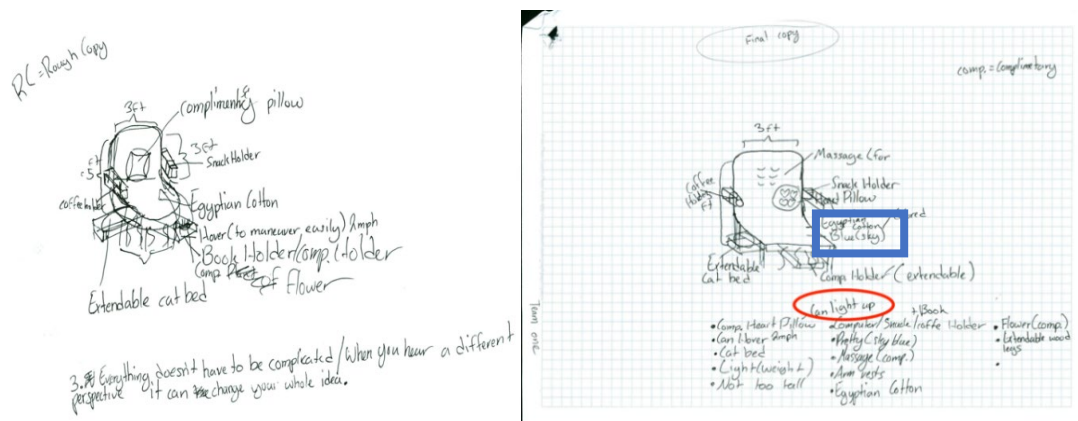 RC = Rough Copy
3ft
complimentry pillow
3ft
Snack Holder
ft
coffee holder
Egyptian Cotton
Hover (to maneuver, easily) 2mph
Book Holder/comp. Holder
Comp. of Flower
Extendable cat bed
3. Everything doesn't have to be complicated/When you hear a different
perspective it can change your whole idea.
Final copy
comp. = Complimetory
3ft
Massage (for
Coffee
Holder
ft
Snack Holder
Heart Pillow
Egyptian
cotton
Blue(sky)
Extendable
Cat bed
Comp Holder (extendable)
Team one
Can light up
+/Book
• Comp. Heart Pillow
• Can Hover 2mph
• Cat bed
• Light(weight)
• Not too tall
• Computer/Snack/coffe Holder
• Pretty (sky blue)
• Massage (comp.)
• Arm rests
• Egyptian Cotton
• Flower (comp.)
• Extendable wood
legs
•